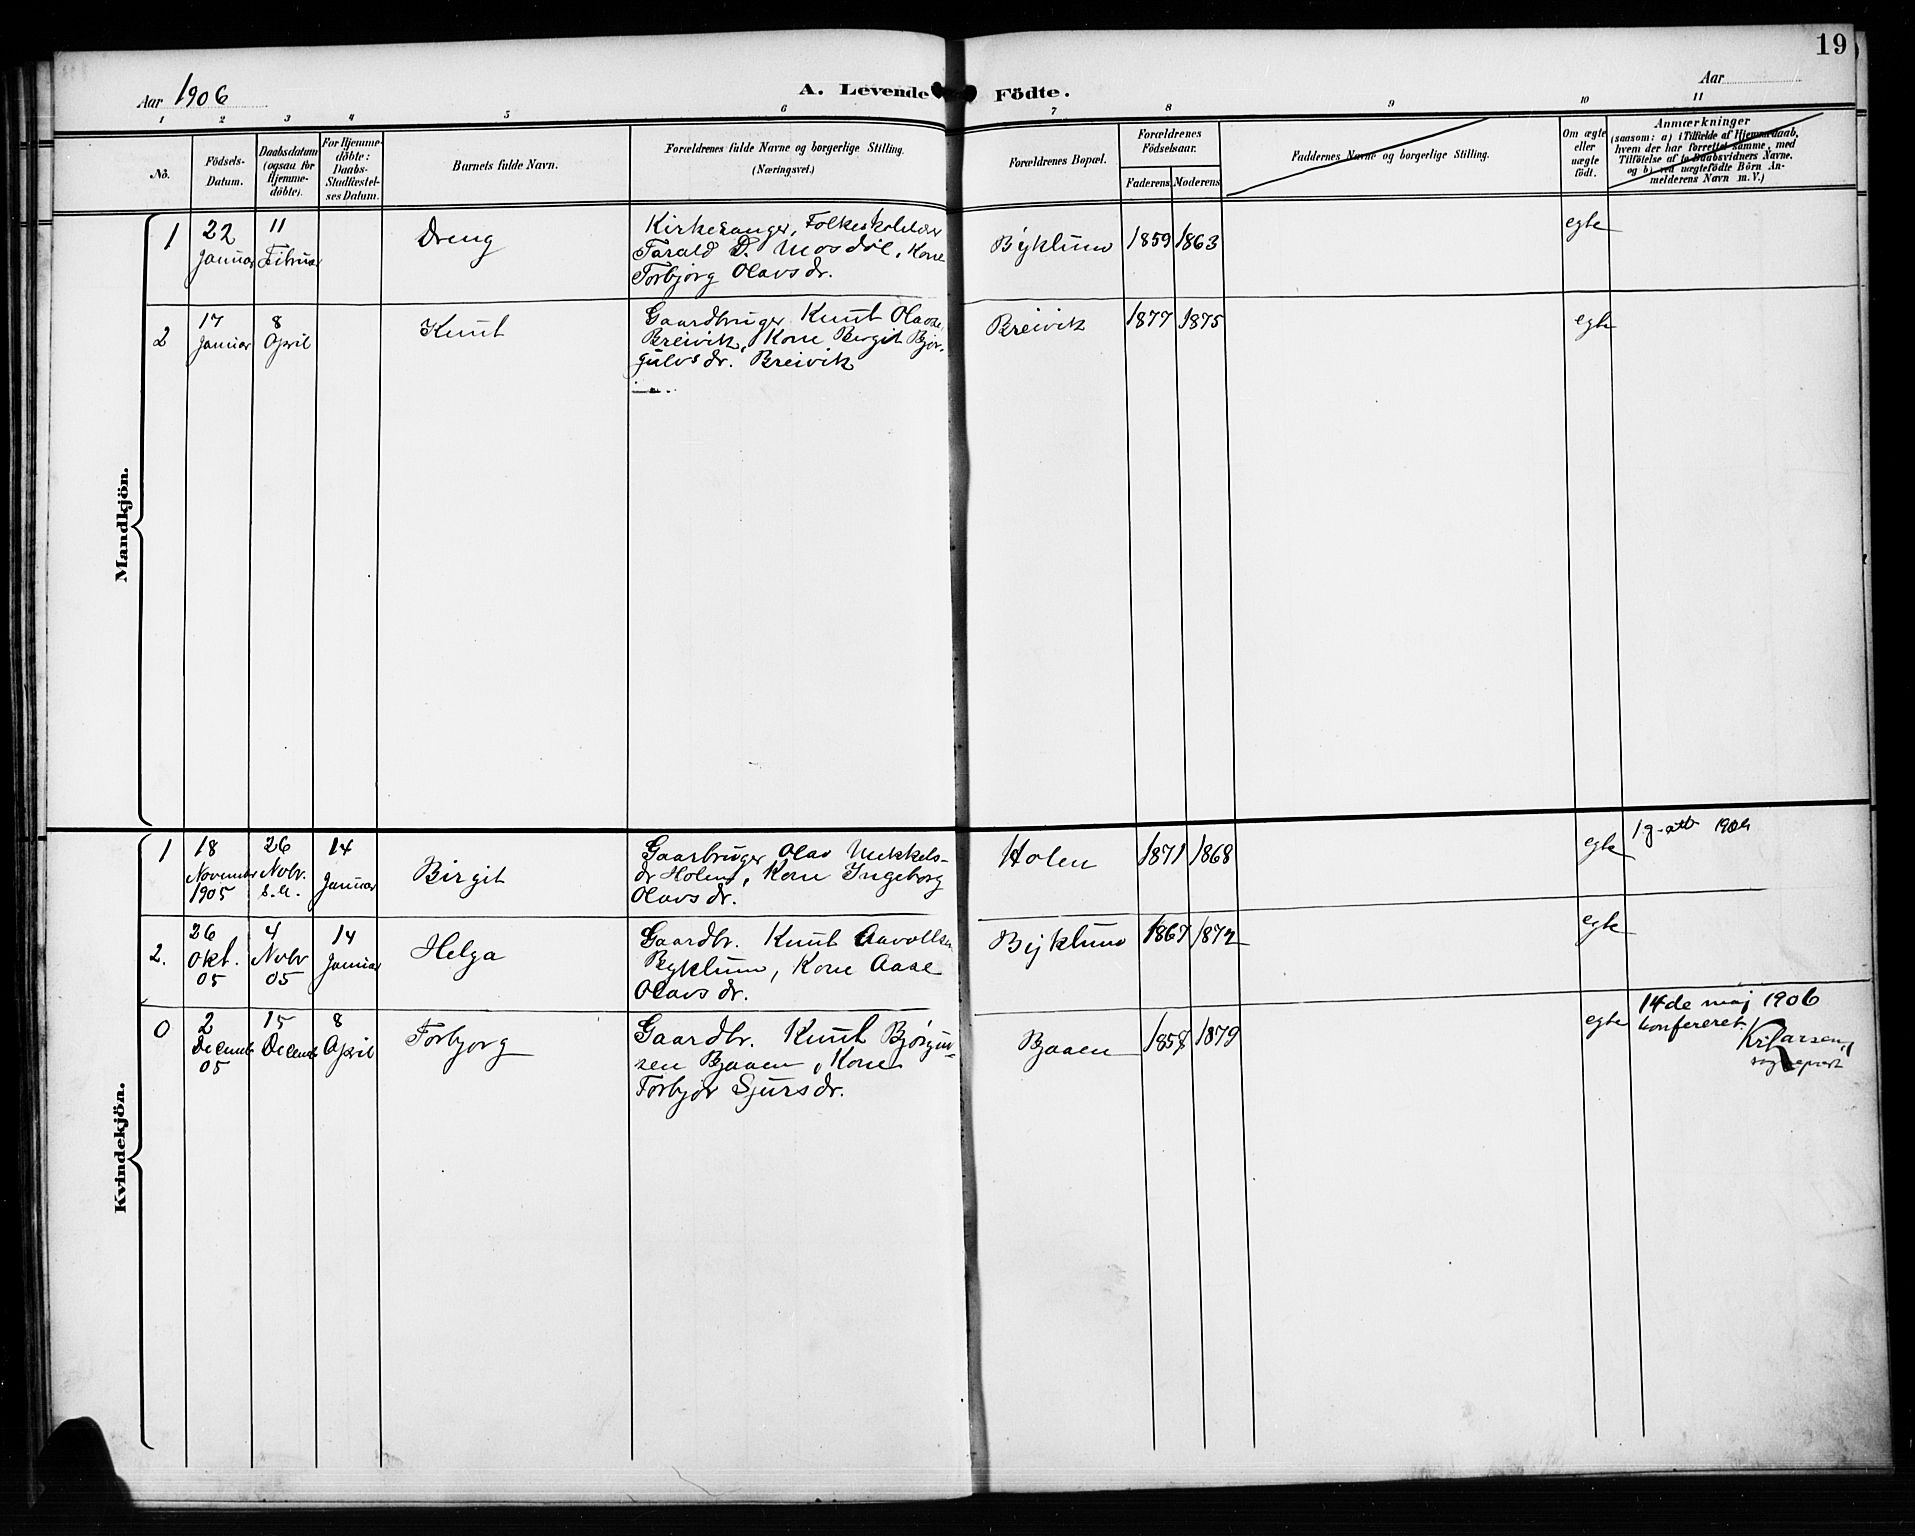 19
Aar 1906
A. Levende Födte.
Aar
1 2 3 4 5 6 7 8 9 10 11
No.
Födsels-Datum.
Daabsdatum (ogsaa for Hjemme-döbte).
For Hjemme-döbte: Daabs-Stadfæstel-ses Datum.
Barnets fulde Navn.
Forældrenes fulde Navne og borgerlige Stilling. (Næringsvei.)
Forældrenes Bopæl.
Forældrenes Födselsaar.
Faderens Moderens
Faddernes Navne og borgerlige Stilling.
Om ægte eller uægte födt.
Anmærkninger
(saasom: a) i Tilfælde af Hjemmedaab,
hvem der har forrettet samme, med
Tilföielse af to Daabsvidners Navne.
og b) ved uægtefödte Börn An-
melderens Navn m. V.)
Mandkjön.
1
22 Januar
11 Februar
Dreng
Kirkesanger,
Tarald D. Mosdøl, Kone
Torbjørg Olavsdr.
Byklum
1859 1863
egte
2
17 Januar
8 April
Knut
Gaardbruger Knut Olavse
Breivik, Kone Birgit Bjør-
gulvsdr. Breivik
Breivik
1877 1875
egte
Kvindekjön.
1
18 November 1905
26 Novbr. s.a.
14 Januar
Birgit
Gaarbruger Olav Mekkels-
dr Holen, Kone Ingeborg
Olavsdr.
Holen
1871 1868
egte
2.
26 Okt. 05
4 Novbr 05
14 Januar
Helga
Gaardbr. Knut Aavoltsen
Byklum, Kone Aase
Olavsdr.
Byklum
1867 1872
egte
0
2 Decemb 05
15 Decemb
8 April
Torbjørg
Gaardbr. Knut Bjørguv-
sen Bjaaen, Kone
Torbjør Sjursdr.
Bjaaen
1857 1879
egte
14de maj 1906
konfereret
Kr Larsen,
sogneprest